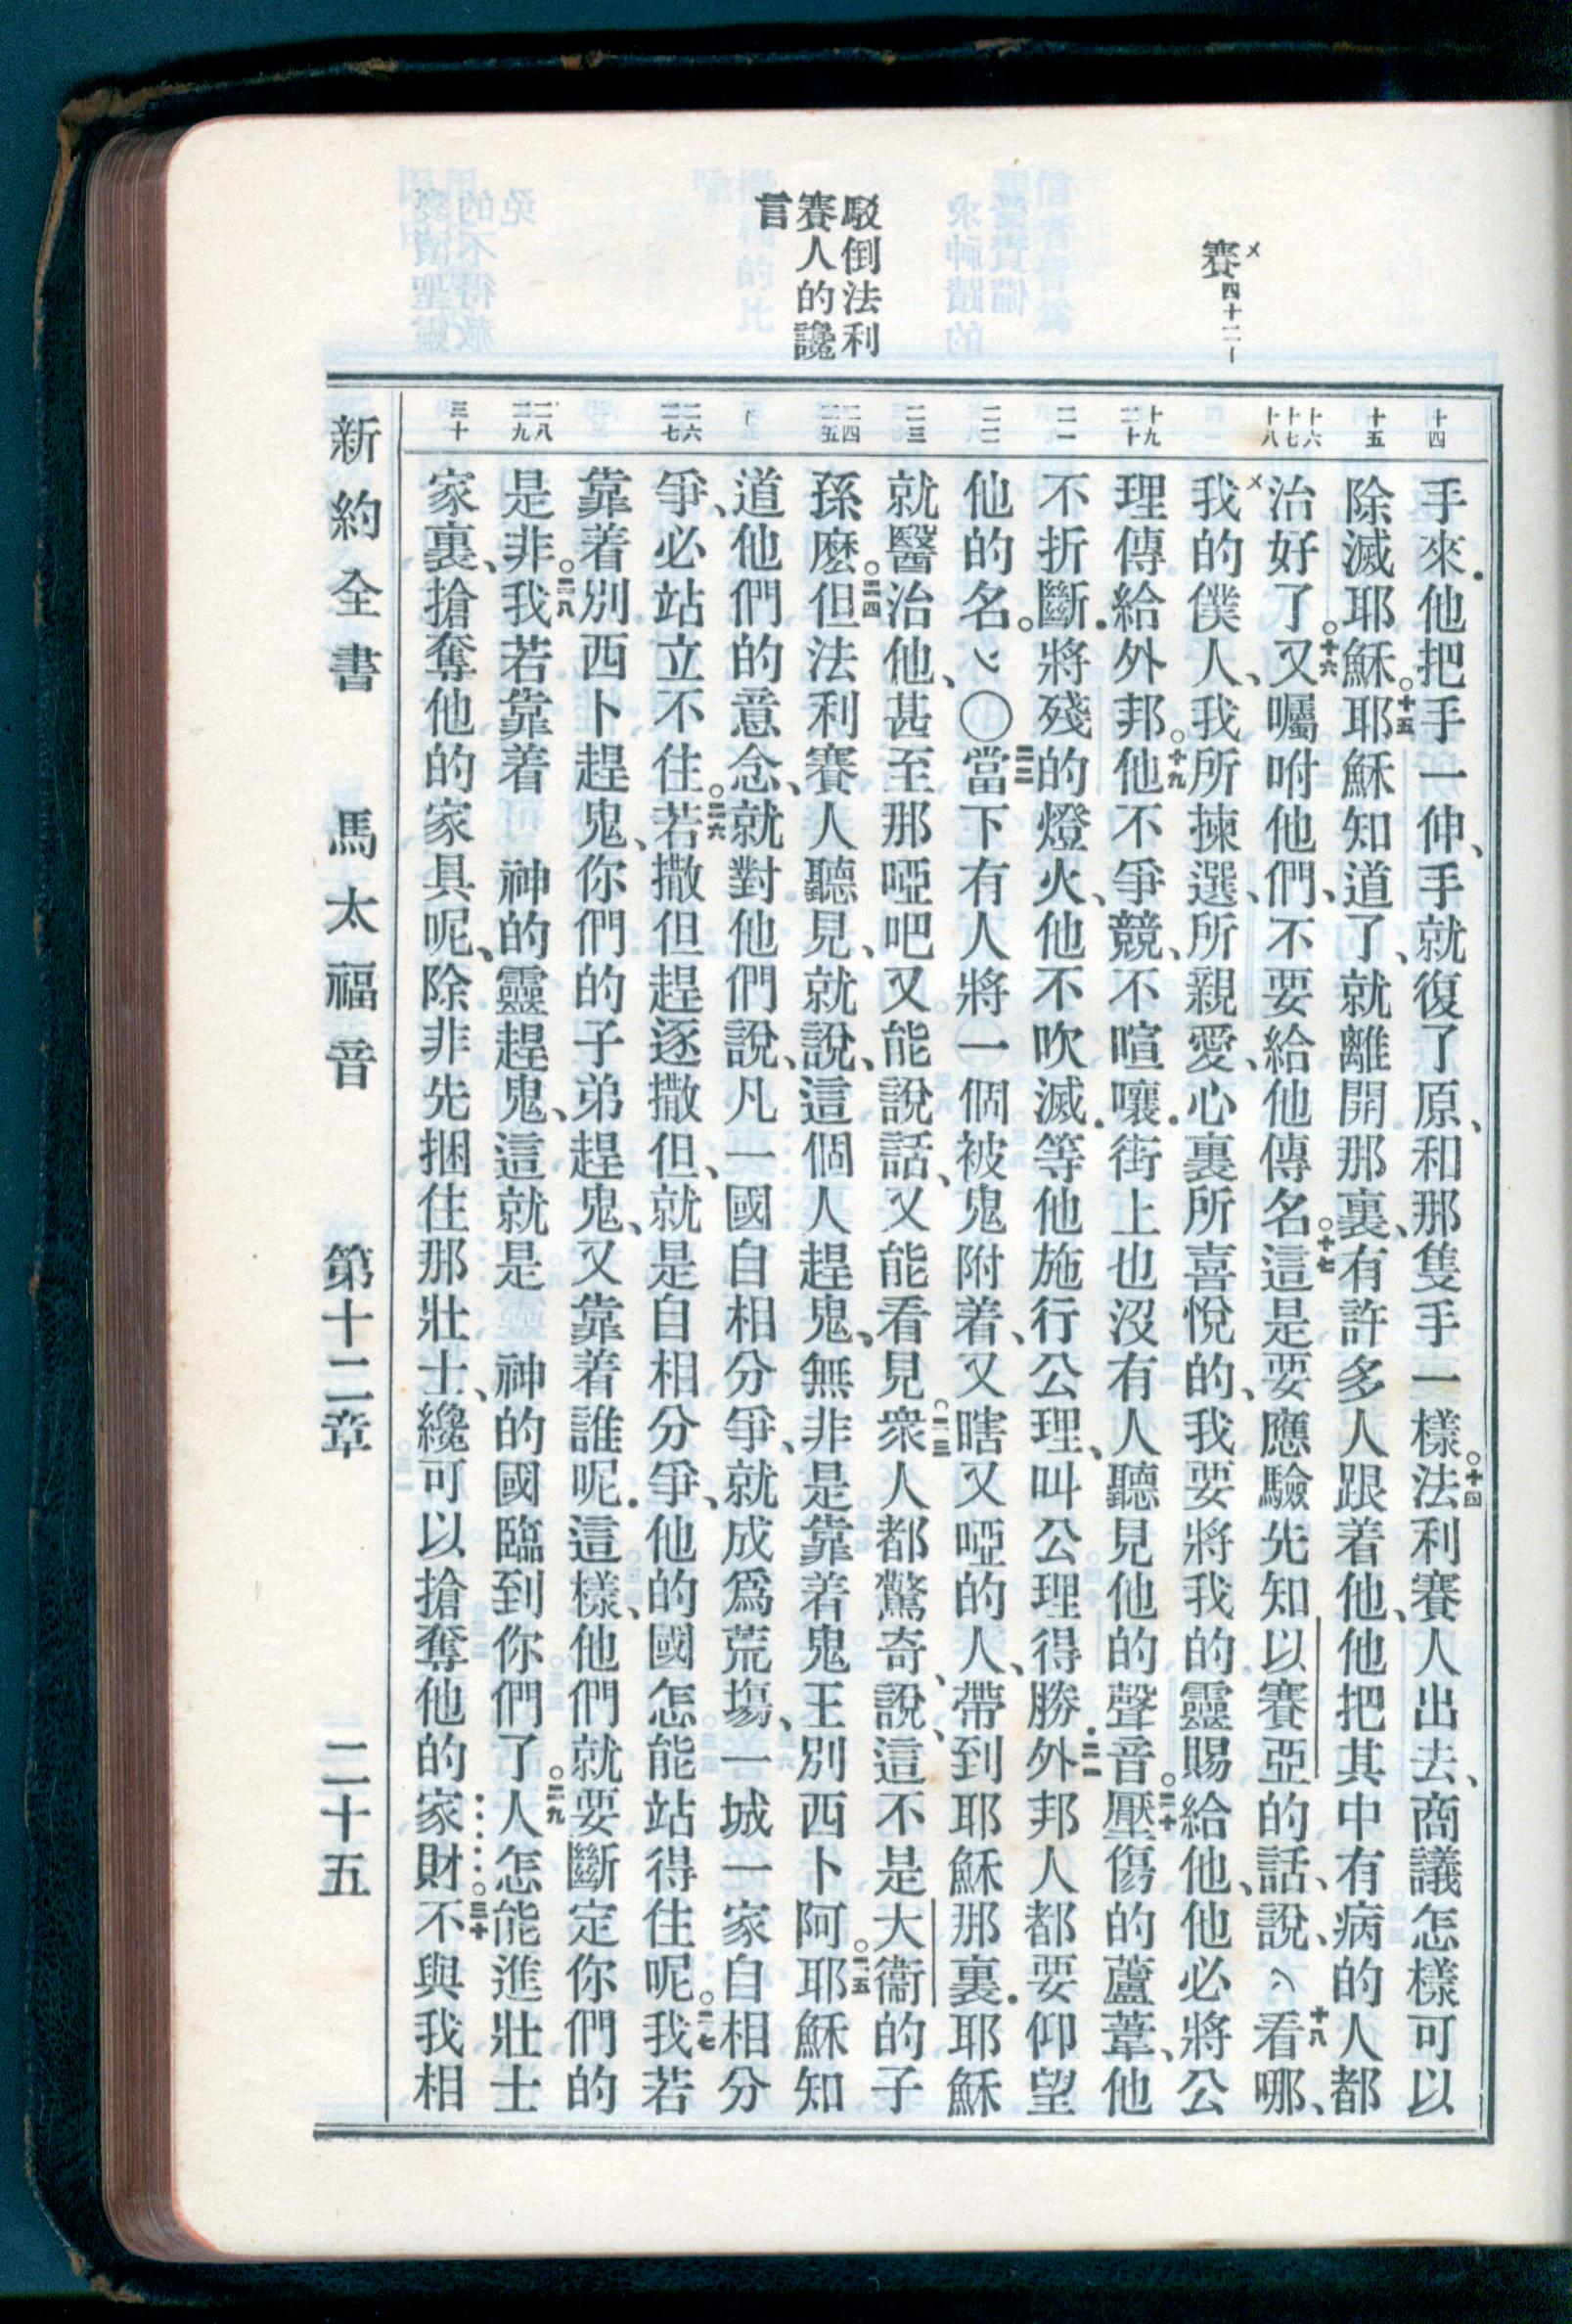 賽四十二1
駁倒法利
賽人的讒
言
十四
十五
十六
十七
十八
十九
二十
二一
二二
二三
二四
二五
二六
二七
二八
二九
三十
手來．他把手一伸、手就復了原、和那隻手一樣。十四法利賽人出去、商議怎樣可以
除滅耶穌。十五耶穌知道了、就離開那裏、有許多人跟着他、他把其中有病的人都
治好了。十六又囑咐他們、不要給他傳名。十七這是要應驗先知以賽亞的話、說、十八看哪、
我的僕人、我所揀選、所親愛、心裏所喜悅的、我要將我的靈賜給他、他必將公
理傳給外邦。十九他不爭競、不喧嚷．街上也沒有人聽見他的聲音。二十壓傷的蘆葦、他
不折斷．將殘的燈火、他不吹滅．等他施行公理、叫公理得勝．二一外邦人都要仰望
他的名。〇二二當下有人將一個被鬼附着、又瞎又啞的人、帶到耶穌那裏．耶穌
就醫治他、甚至那啞吧又能說話、又能看見。二三衆人都驚奇、說、這不是大衞的子
孫麽。二四但法利賽人聽見、就說、這個人趕鬼、無非是靠着鬼王別西卜阿。二五耶穌知
道他們的意念、就對他們說、凡一國自相分爭、就成爲荒塲、一城一家自相分
爭、必站立不住。二六若撒但趕逐撒但、就是自相分爭、他的國怎能站得住呢。二七我若
靠着別西卜趕鬼、你們的子弟趕鬼、又靠着誰呢．這樣、他們就要斷定你們的
是非。二八我若靠着　神的靈趕鬼、這就是　神的國臨到你們了。二九人怎能進壯士
家裏、搶奪他的家具呢、除非先捆住那壯士、纔可以搶奪他的家財。三十不與我相
新約全書　馬太福音　第十二章　二十五